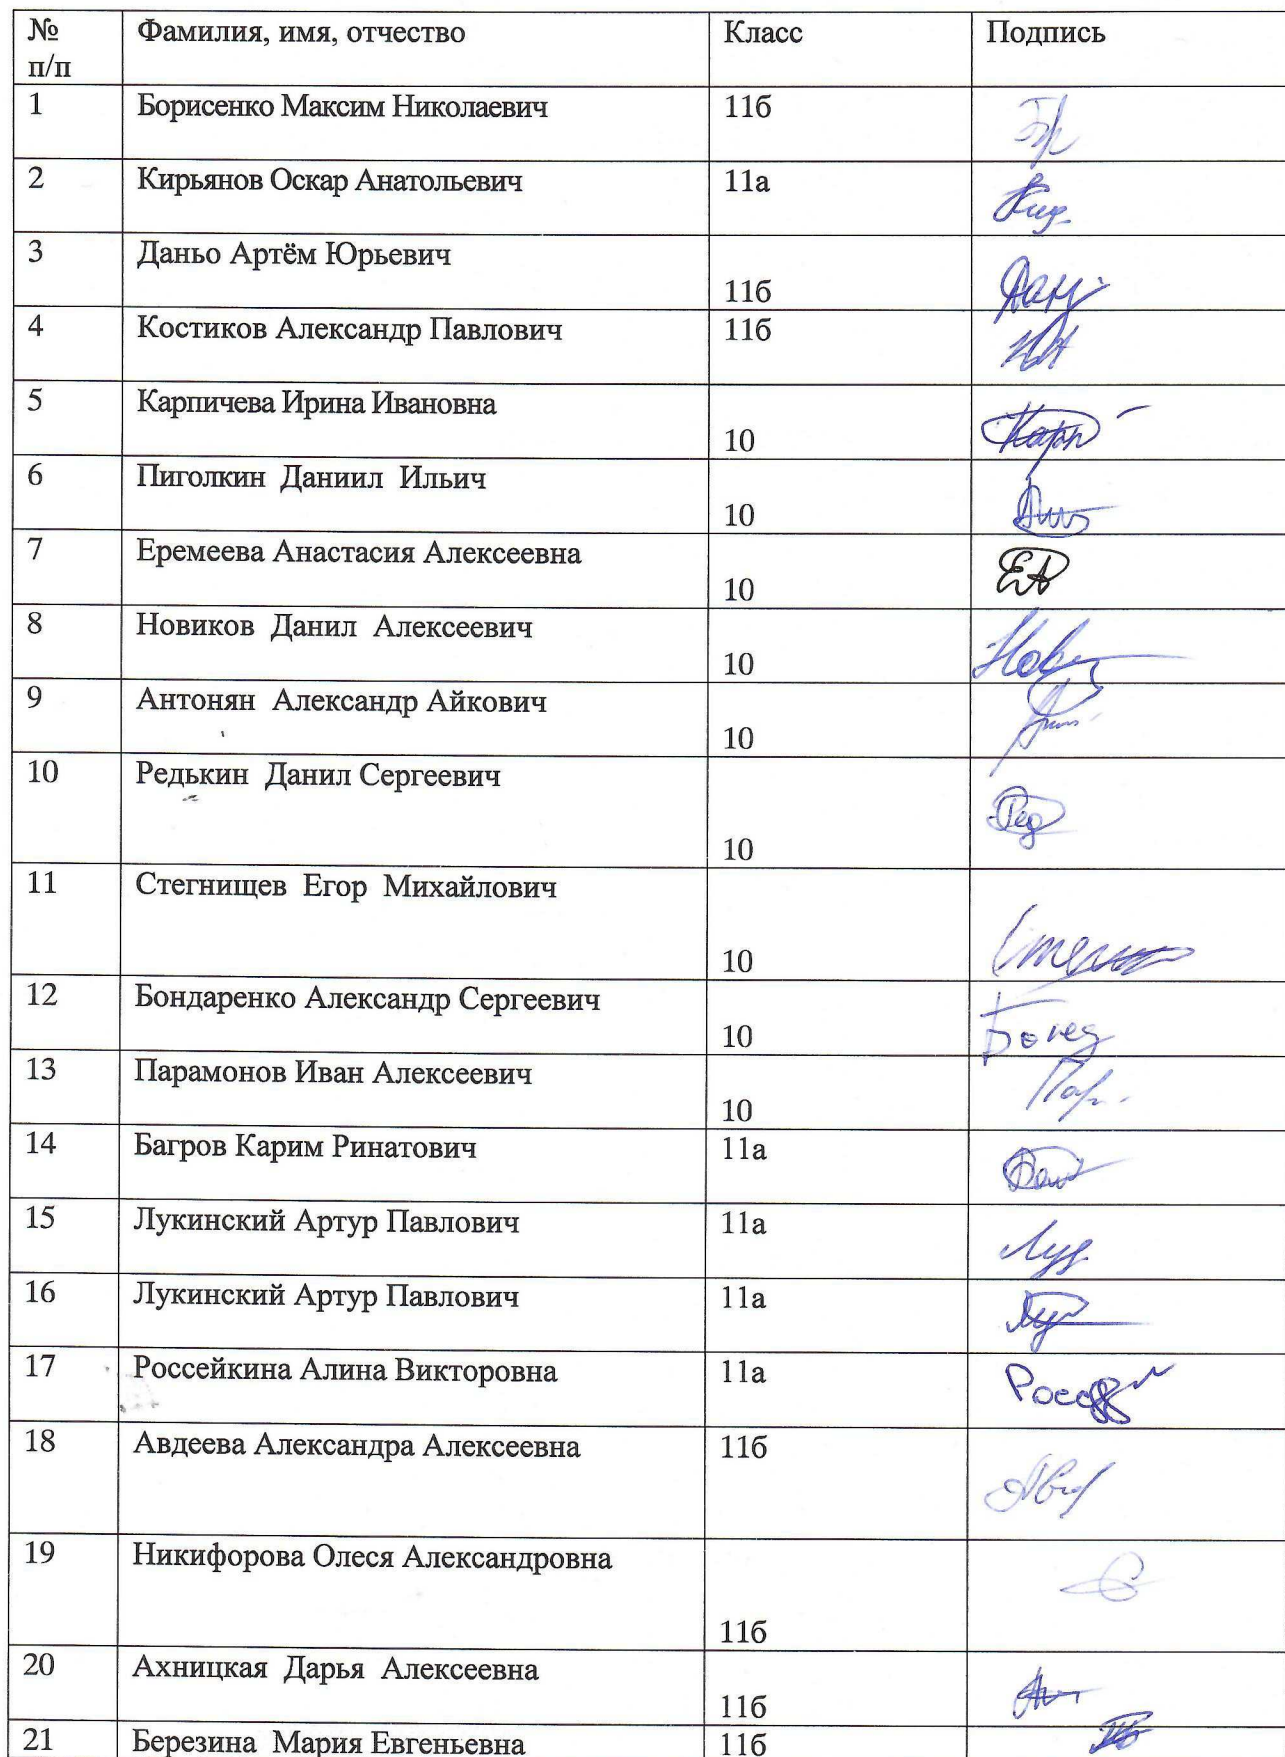 № п/п Фамилия, имя, отчество Класс Подпись
1 Борисенко Максим Николаевич 11б
2 Кирьянов Оскар Анатольевич 11а
3 Даньо Артём Юрьевич 11б
4 Костиков Александр Павлович 11б
5 Карпичева Ирина Ивановна 10
6 Пиголкин Даниил Ильич 10
7 Еремеева Анастасия Алексеевна 10
8 Новиков Данил Алексеевич 10
9 Антонян Александр Айкович 10
10 Редькин Данил Сергеевич 10
11 Стегнищев Егор Михайлович 10
12 Бондаренко Александр Сергеевич 10
13 Парамонов Иван Алексеевич 10
14 Багров Карим Ринатович 11а
15 Лукинский Артур Павлович 11а
16 Лукинский Артур Павлович 11а
17 Россейкина Алина Викторовна 11а
18 Авдеева Александра Алексеевна 11б
19 Никифорова Олеся Александровна 11б
20 Ахницкая Дарья Алексеевна 11б
21 Березина Мария Евгеньевна 11б